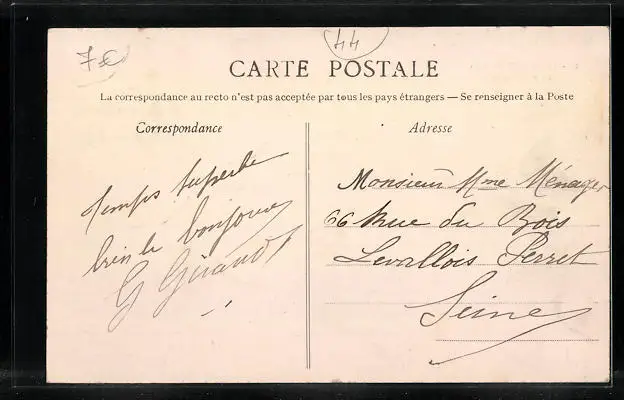 7€
44
CARTE POSTALE
La correspondance au recto n'est pas acceptée par tous les pays étrangers — Se renseigner à la Poste
Correspondance
Adresse
Temps superbe
bonjour
G Giraud
Monsieur Mme Ménager
66 Rue du Bois
Levallois Perret
Seine